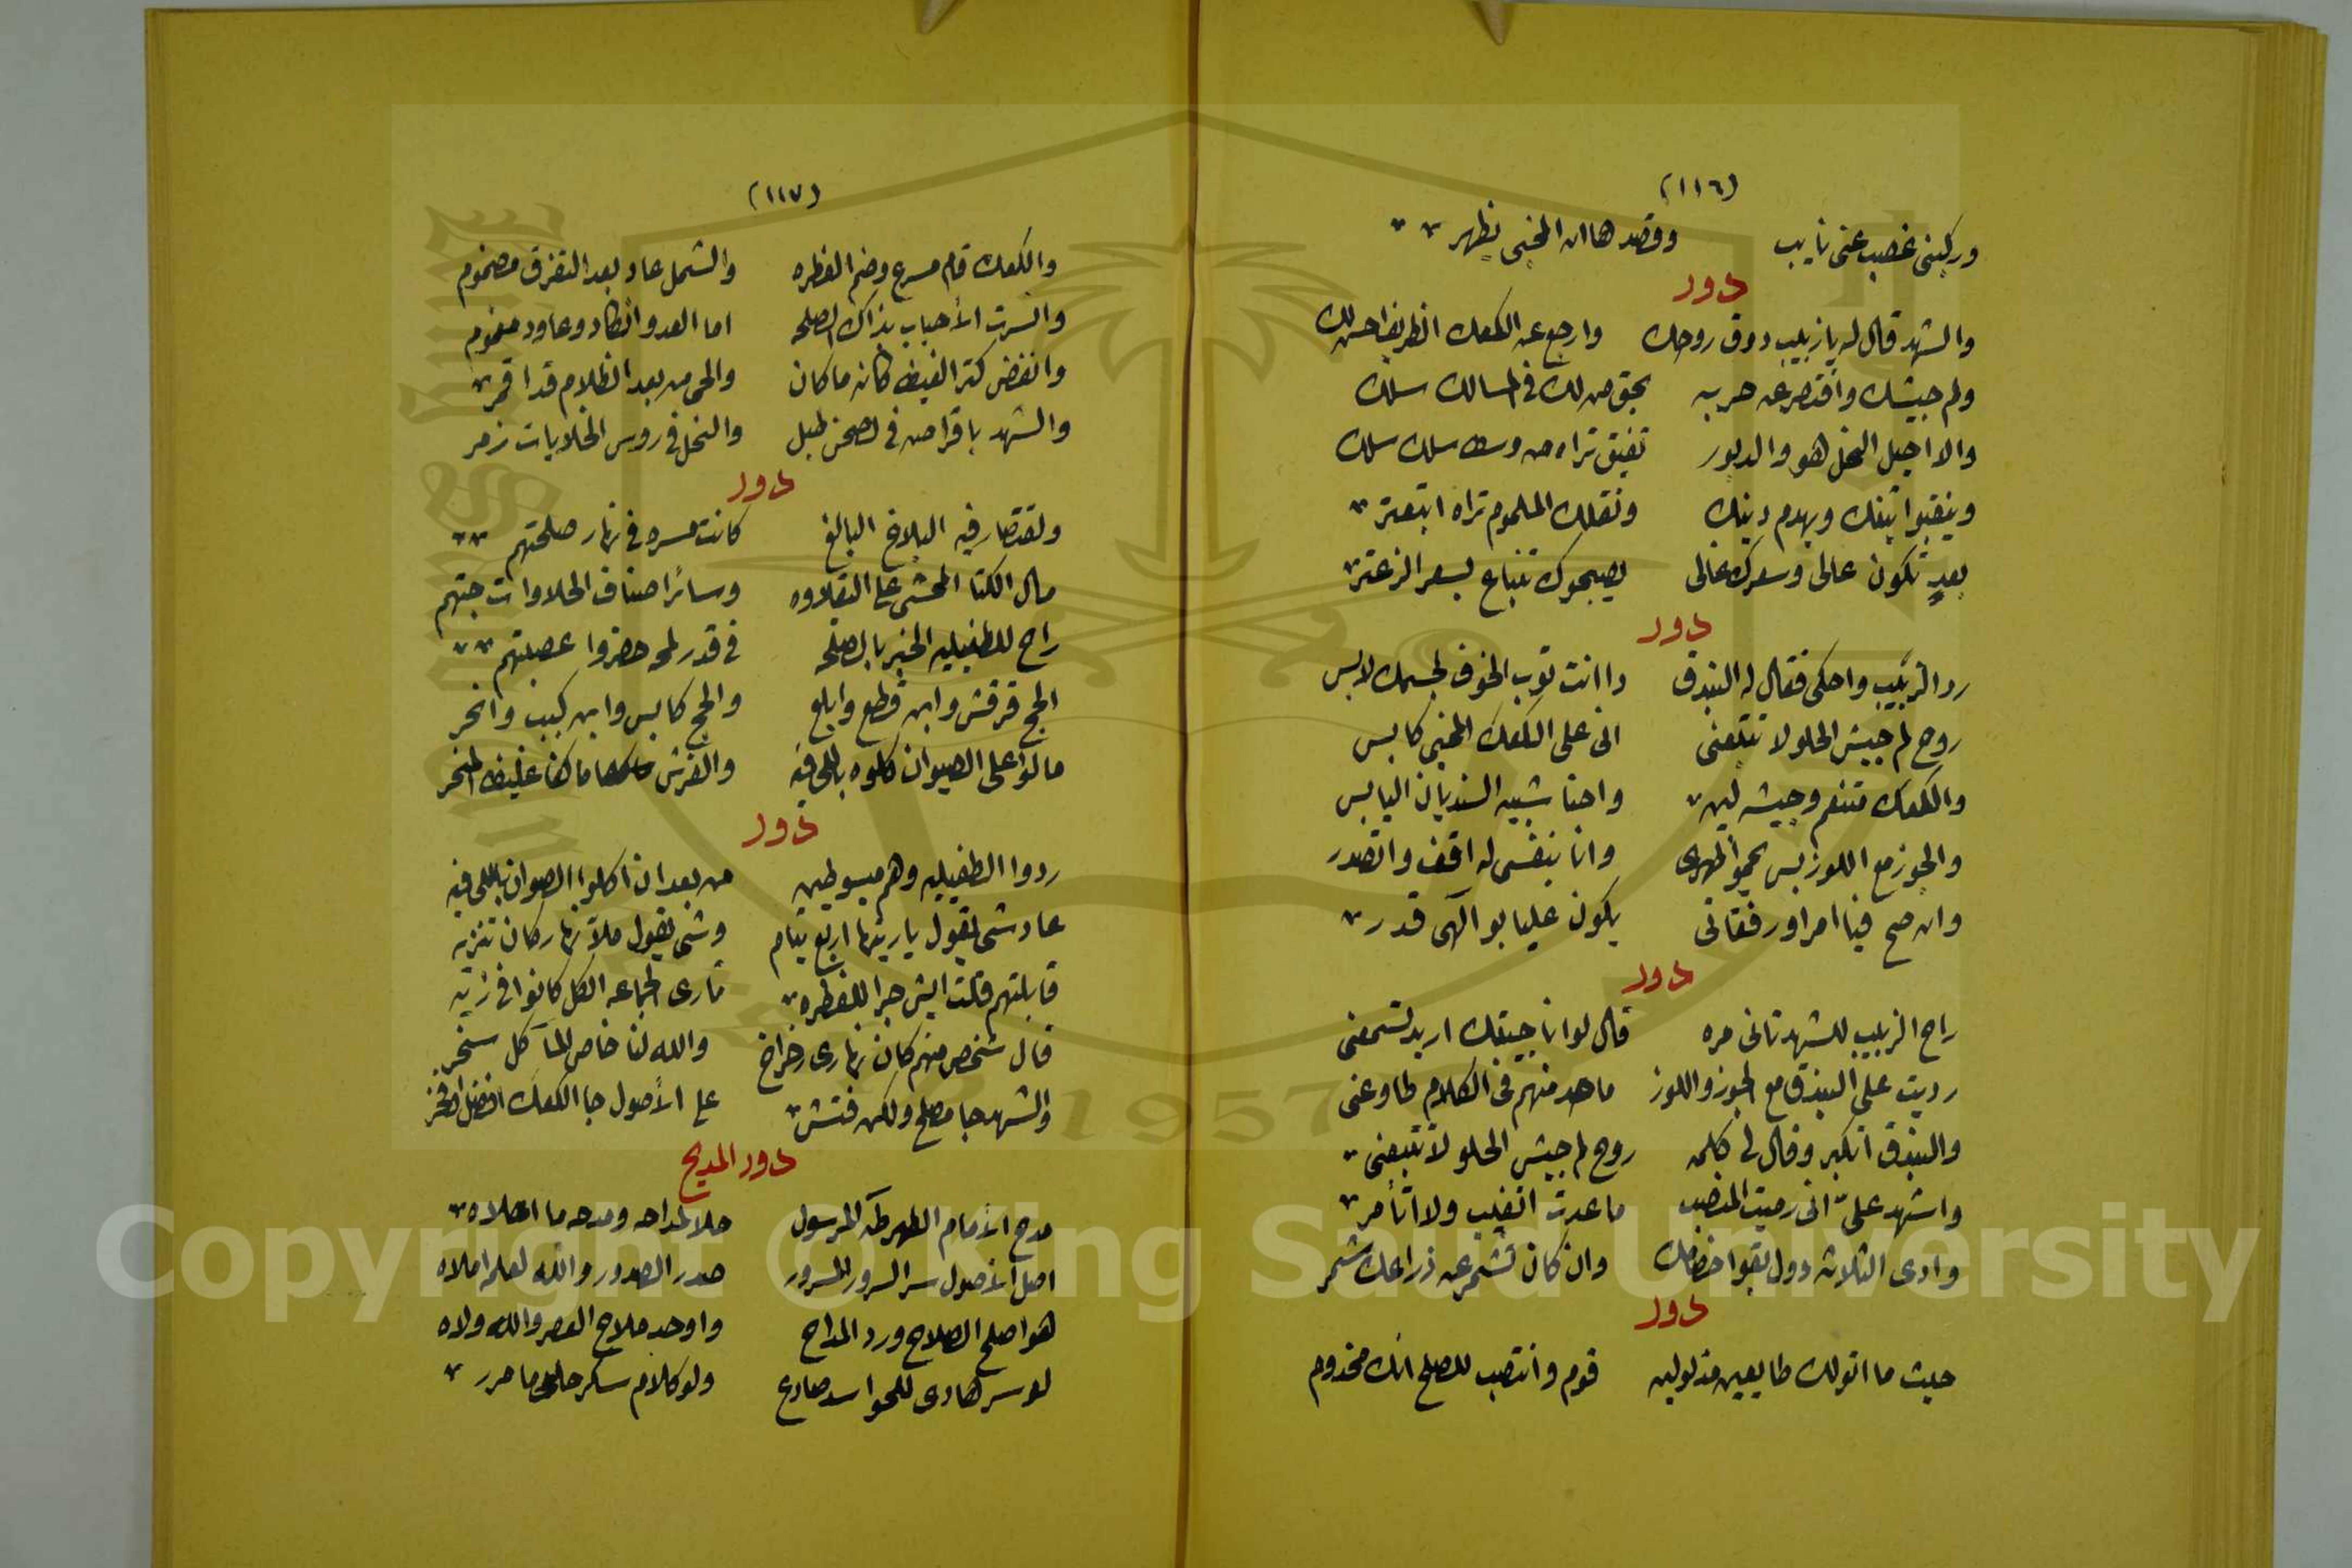 (١١٦)
وركبنى غصب عنى نايب وقصدها ان المخبى يظهر
دور
والشهد قال له يا زبيب دوق روحك وارجع عن الكعك انظر يفاحسن لك
ولم جيشك واقتصر عن حربه بحق من لك فى المسالك سلك
والا اجيب النحل هو والدبور تفيق تراه من وسط سلك سلك
وينقبوا بيتك ويهدم دينك وتقلك الملموم تراه اتبعتر
بعد تكون عالى وسعرك غالى يصبحوك تنباع بسعر الزعتر
دور
رد الزبيب واحكى فقال له البندق دا انت توب الخوف لجسمك لابس
روح لم جيش الحلو لا تتبعنى انى على الكعك المخبى كابس
والكعك متنعم وجيشه لين واحنا شبيه السنديان اليابس
والجوز مع اللوز بس يحموا ظهرى وانا بنفسى له اقف واتصدر
وان صح فينا امر اور فقاتى يكون علينا بو الهى قدر
دور
راح الزبيب للشهد تانى مره قال لو انا جيتك اريد تسمعنى
رديت على البندق مع الجوز واللوز ما حد منهم فى الكلام طاوعنى
والبندق اتكبر وقال لى كلمه روح لم جيش الحلو لا تتبعنى
واشهد على انى رميت المنصب ما عدت اتغلب ولا اتأمر
وادى الثلاثه دول بقوا خصمك وان كان تشمر عن ذراعك شمر
دور
حيث ما اتولك طايعين مذلولين قوم وانتصب للصلح انك مخدوم
(١١٧)
والكعك قام مسرع وضم الفطره والشمل عاد بعد التفرق مضموم
والسرت الأحباب بذاك الصلحه اما العدو انكاد وعاود مغموم
وانفض كتر الغيظ كانه ما كان والحى من بعد الظلام قد اقمر
والشهد باقراصه فى الصحن طبل والنحل فى روس الخلايات زمر
دور
ولقتصار فيه البلاغ البالغ كانت مسره فى نهار صلحتهم
مال الكتا المحشى على البقلاوه وسائر اصناف الحلاوات جتهم
راح للطفيليه الخبر بالصلحه فى قدر لمحه حضروا عصبتهم
الحج قرقش وابن قطع وابلع والحج كابس وابن كبب وانحر
مالوا على الصيوان كلوه باللى فيه والفرش ما كان غليظ المنخر
دور
ردوا الطفيليه وهم مبسوطين من بعد ان اكلوا الصوان باللى فيه
عاد شى يقول ياريتها اربع تيام وشى يقول ملا نهار كان تنزيه
قابلتهم قلت ايش جرا للفطره تارى الجماعه الكل كانوا فى تيه
قال شخص منهم كان نهارى رخراخ والله لنا خاص المأكل سخر
والشهد جا مصلح ولكن فتش على الأصول جا الكعك افضل افخر
دور المديح
مدح الأمام الطهر طه المرسول حلا لمداحه ومدحه ما احلاه
اصل الأصول سر السرور المسرور صدر الصدور والله لعلم املاه
هو اصلح الصلاح ورد المداح واوحد ملاح العصر والله ولاه
لو سر هادى للحواسد صادع ولو كلام سكر حلى ما مرر
Copyright © King Saud University
1957